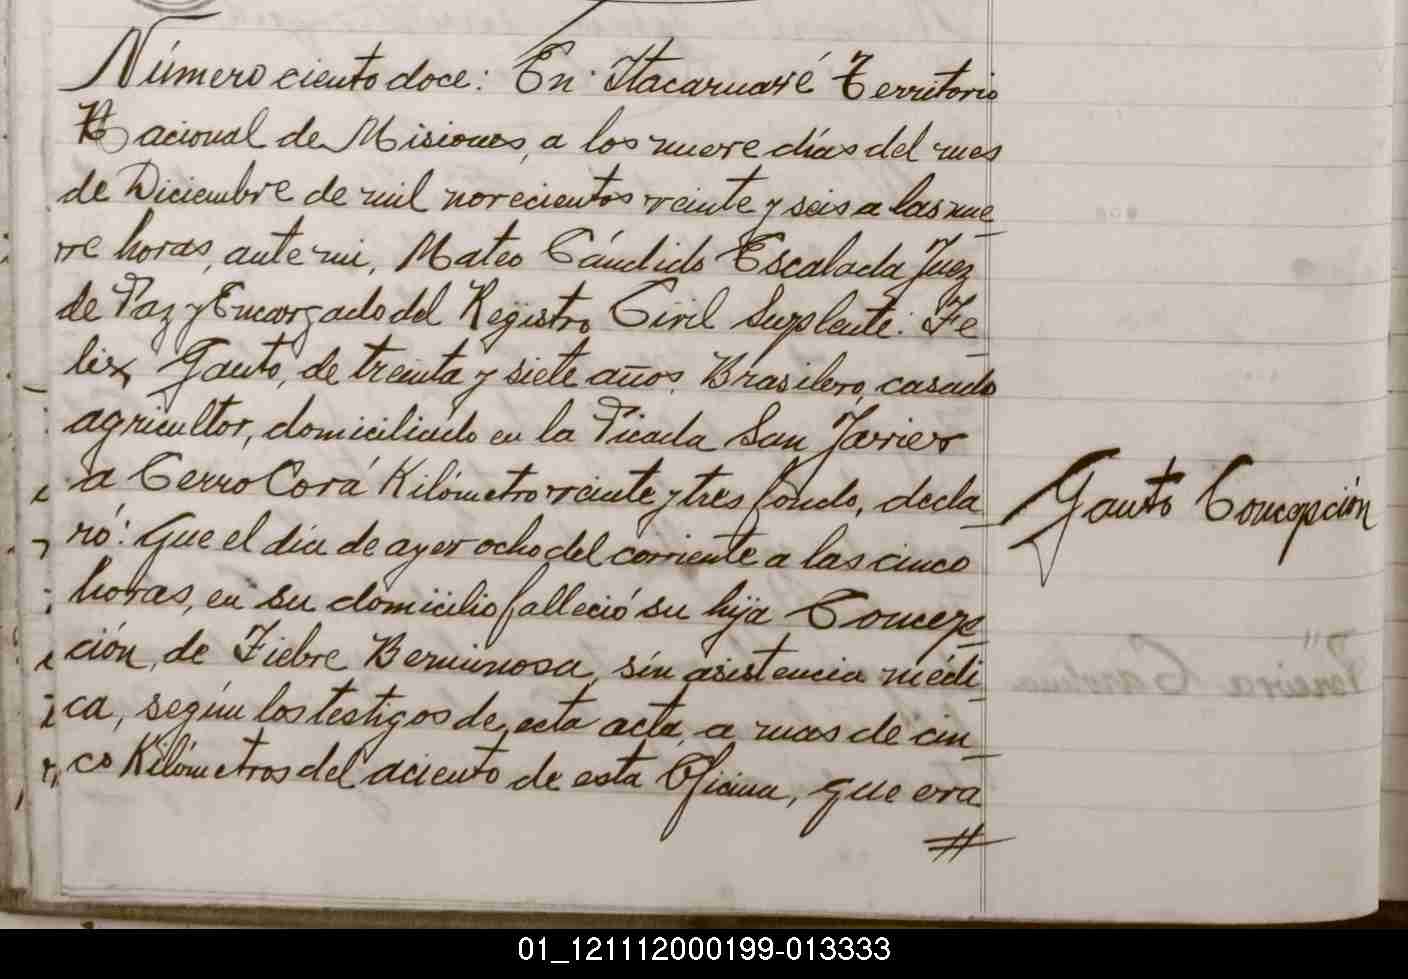 Número ciento doce: En Itacaruaré Territorio
Nacional de Misiones, a los nueve días del mes
de Diciembre de mil novecientos veinte y seis a las nue
ve horas, ante mi, Mateo Cándido Escalada Juez
de Paz y Encargado del Registro Civil Suplente: Fe
lix Gauto, de treinta y siete años, Brasilero, casado
agricultor, domiciliado en la Picada San Javier
a Cerro Corá Kilómetro veinte y tres fondo, decla
ró: Que el día de ayer ocho del corriente a las cinco
horas, en su domicilio falleció su hija Concep
Gauto Concepción
ción, de Fiebre Berminosa, sin asistencia médi
ca, según los testigos de esta acta, a mas de cin
co Kilómetros del aciento de esta Oficina, que era
01_121112000199-013333